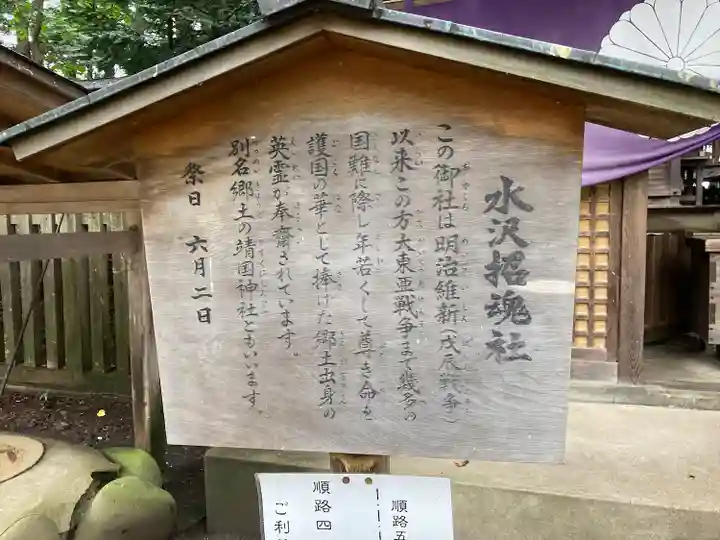 水沢招魂社
この御社は明治維新(戊辰戦争)
以来この方大東亜戦争まで幾多の
国難に際し年若くして尊き命を
護国の華として捧げた郷土出身の
英霊が奉斎されています。
別名郷土の靖国神社ともいいます。
祭日 六月二日
順路五
順路四
ご利